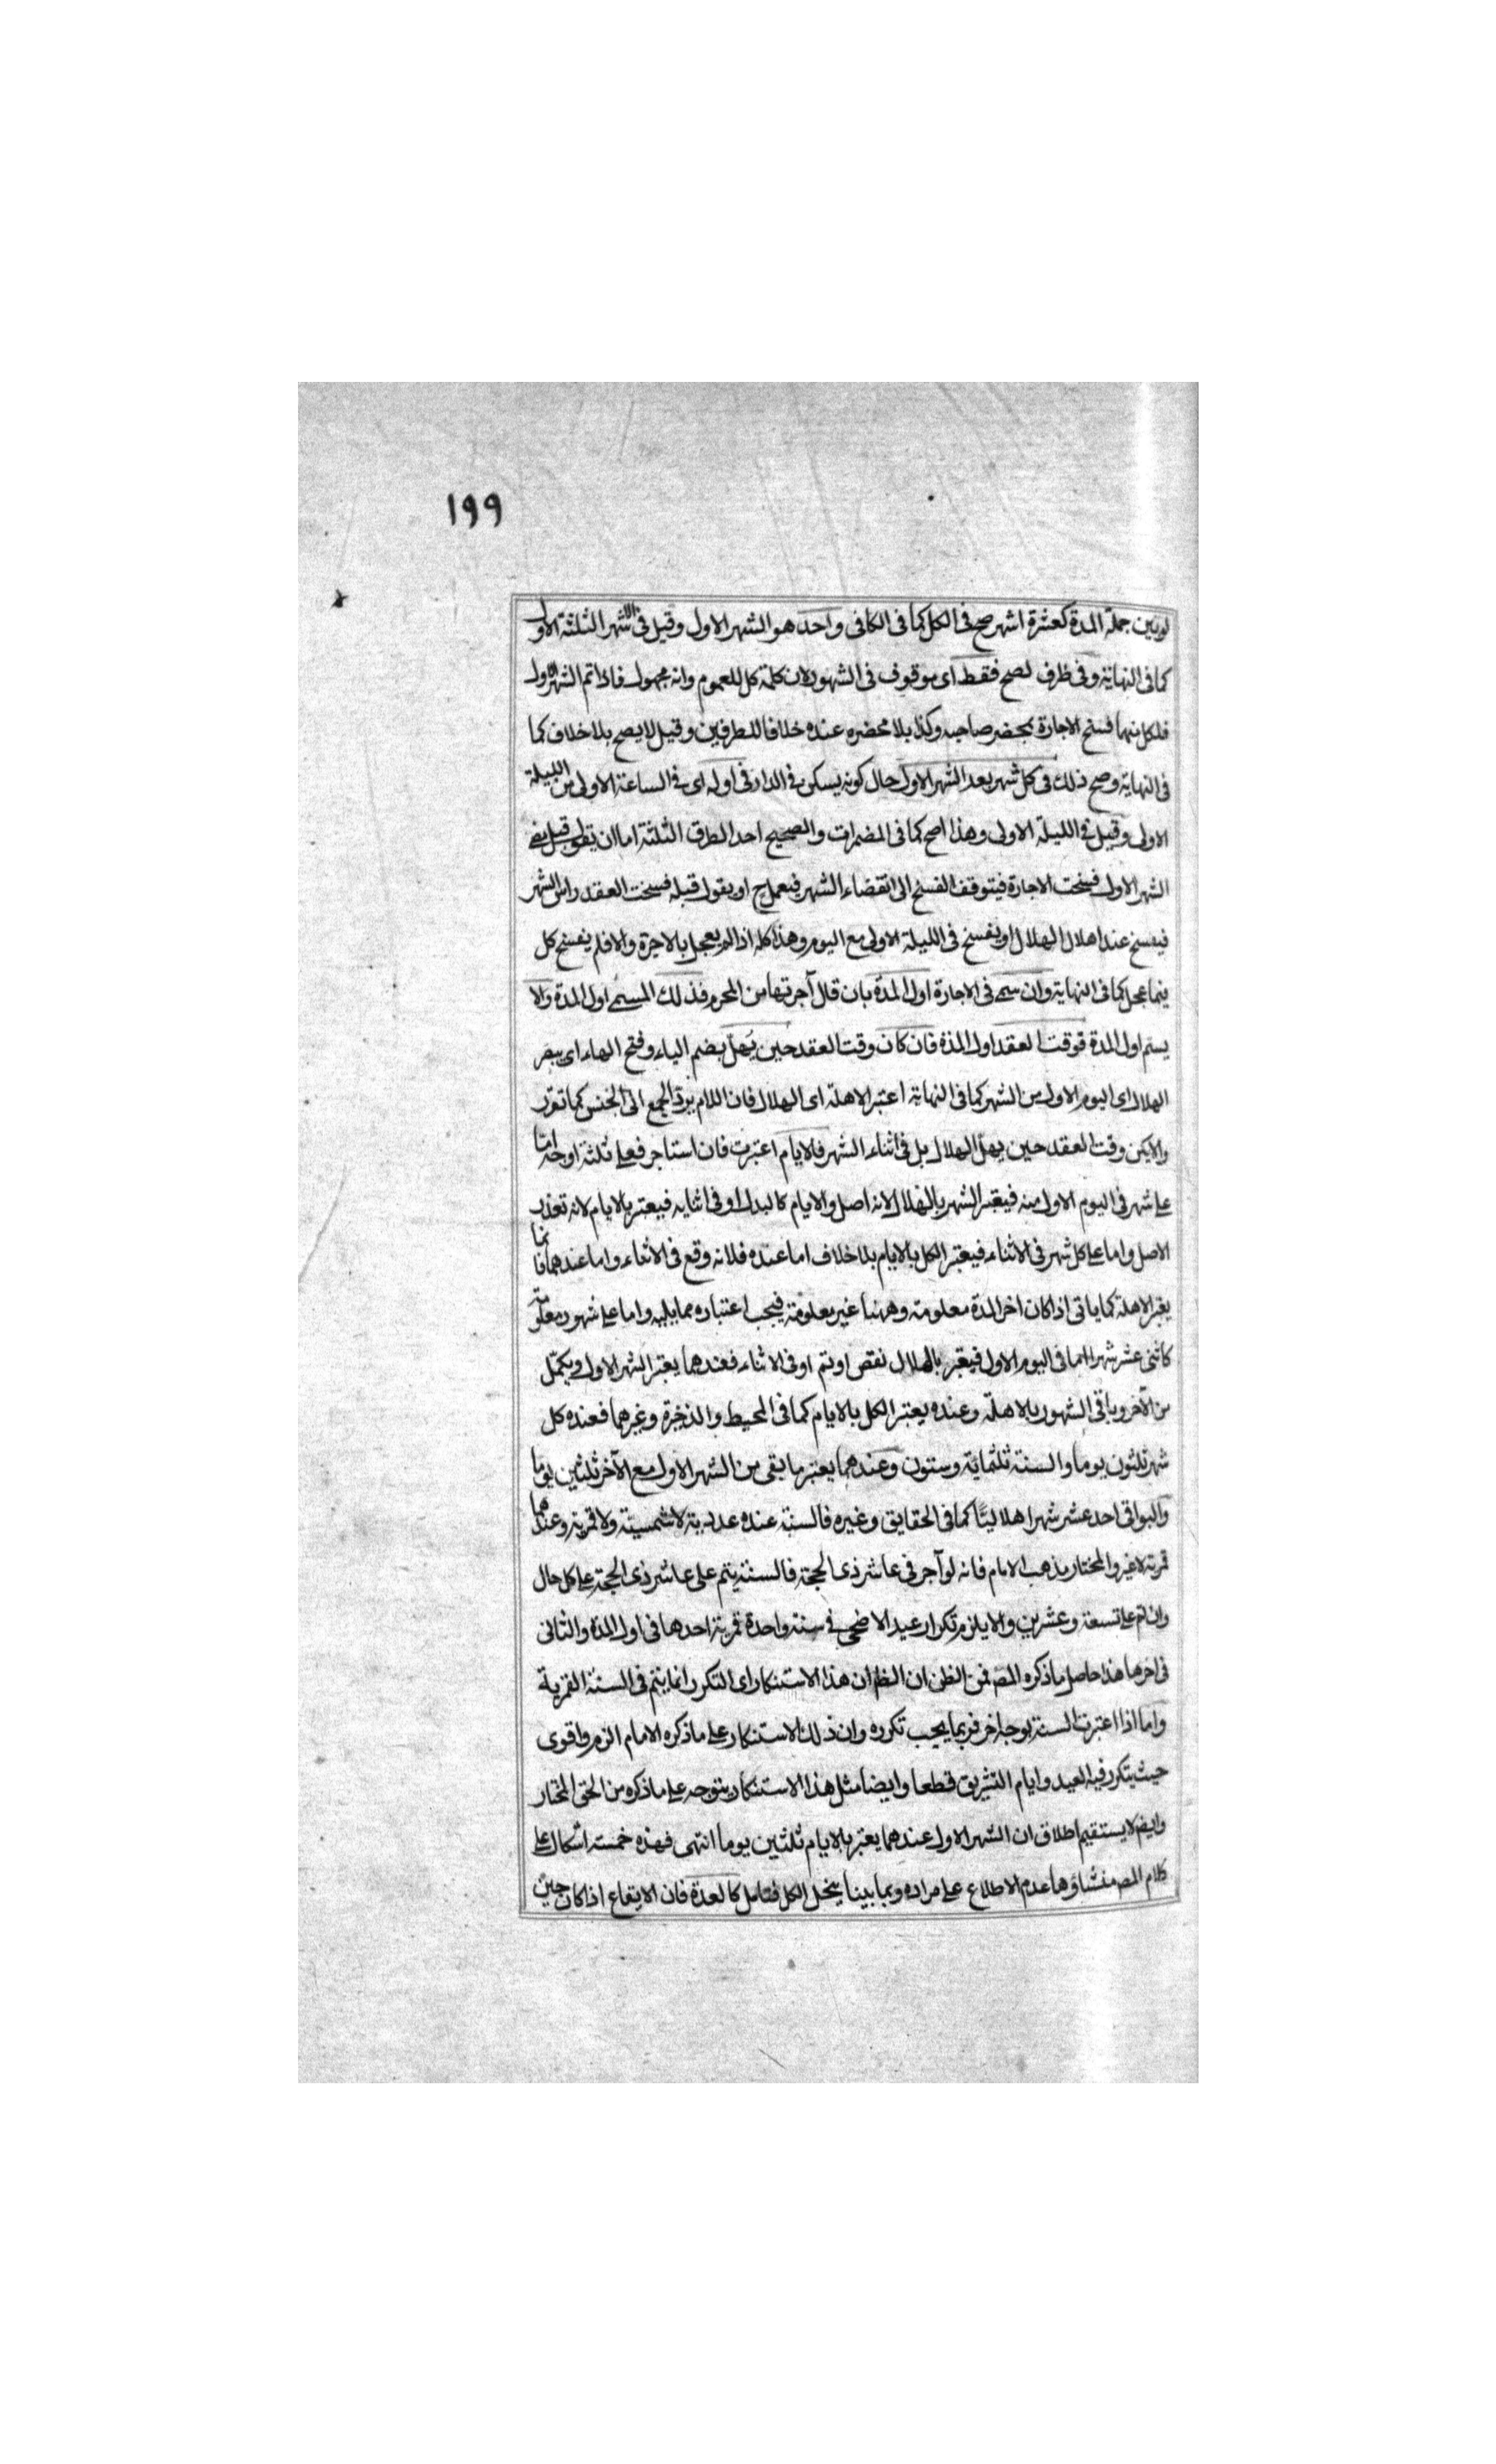 ١٩٩
لو بين جملة المدة كعشرة اشهر صح فى الكل كما فى الكافى واحد هو الشهر الاول وقيل فى الاشهر الثلثة الاول
كما فى النهاية وفى ظرف لصح فقط اى موقوف فى الشهور لان كلمة كل للعموم وانه مجهول فاذا تم الشهر الاول
فلكل منهما فسخ الاجارة بمحضر صاحبه وكذا بلا محضره عنده خلافا للطرفين وقيل لا يصح بلا خلاف كما
فى النهاية وصح ذلك فى كل شهر بعد الشهر الاول حال كونه يسكن فى الدار فى اوله اى فى الساعة الاولى من الليلة
الاولى وقيل فى الليلة الاولى وهذا اصح كما فى المضمرات والصحيح احد الطرق الثلثة اما ان يقول قبل مضى
الشهر الاول فسخت الاجارة فيتوقف الفسخ الى انقضاء الشهر فيعمل ح او يقول قبله فسخت العقد راس الشهر
فيفسخ عند اهلال الهلال او يفسخ فى الليلة الاولى مع اليوم وهذا كله اذا لم يعجل بالاجرة والا فلم يفسخ كل
فيما عجل كما فى النهاية وان سمى فى الاجارة اول المدة بان قال آجرتها من المحرم فذلك المسمى اول المدة والا
يسم اول المدة فوقت العقد اول المدة فان كان وقت العقد حين يُهلّ بضم الياء وفتح الهاء اى يبصر
الهلال اى اليوم الاول من الشهر كما فى النهاية اعتبر الاهلة اى الهلال فان اللام يرد الجمع الى الجنس كما تقرر
والا يكن وقت العقد حين يهلّ الهلال بل فى اثناء الشهر فالايام اعتبرت فان استاجر فعلى ثلثة اوجه اما
على شهر فى اليوم الاول منه فيعتبر الشهر بالهلال لانه اصل والايام كالبدل او فى اثنايه فيعتبر بالايام لانه تعذر
الاصل واما على كل شهر فى الاثناء فيعتبر الكل بالايام بلا خلاف اما عنده فلانه وقع فى الاثناء واما عندهما فانما
يعتبر الاهلة كما ياتى اذا كان اخر المدة معلومة وههنا غير معلومة فيجب اعتباره مما يليه واما على شهور معلومة
كاثنى عشر شهرا اما فى اليوم الاول فيعتبر بالهلال نقص او تم او فى الاثناء فعندهما يعتبر الشهر الاول ويكمّل
من الآخر وباقى الشهور بالاهلّة وعنده يعتبر الكل بالايام كما فى المحيط والذخيرة وغيرهما فعنده كل
شهر ثلثون يوما والسنة ثلثماية وستون وعندهما يعتبر ما بقى من الشهر الاول مع الآخر ثلثين يوما
والبواقى احد عشر شهرا هلاليًّا كما فى الحقايق وغيره فالسنة عنده عددية لا شمسية ولا قمرية وعندهما
قمرية لا غير والمختار مذهب الامام فانه لو آجر فى عاشر ذى الحجة فالسنة يتم على عاشر ذى الحجة على كل حال
وان تم على تسعة وعشرين والا يلزم تكرار عيد الاضحى فى سنة واحدة قمرية احدها فى اول المدة والثانى
فى اخرها هذا حاصل ما ذكره المص فمن الظن ان الظ ان هذا الاستنكار اى التكرر انما يتم فى السنة القمرية
واما اذا اعتبرت السنة بوجه اخر فربما يجب تكرره وان ذلك الاستنكار على ما ذكره الامام الزم واقوى
حيث يتكرر فيه العيد وايام التشريق قطعا وايضا مثل هذا الاستنكار يتوجه على ما ذكره من الحق المختار
وايضا لا يستقيم اطلاق ان الشهر الاول عندهما يعتبر بالايام ثلثين يوما انتهى فهذه خمسة اشكال على
كلام المص منشاؤها عدم الاطلاع على مراده وبما بينا ينحل الكل فتامل كالعدة فان الايقاع اذا كان حين